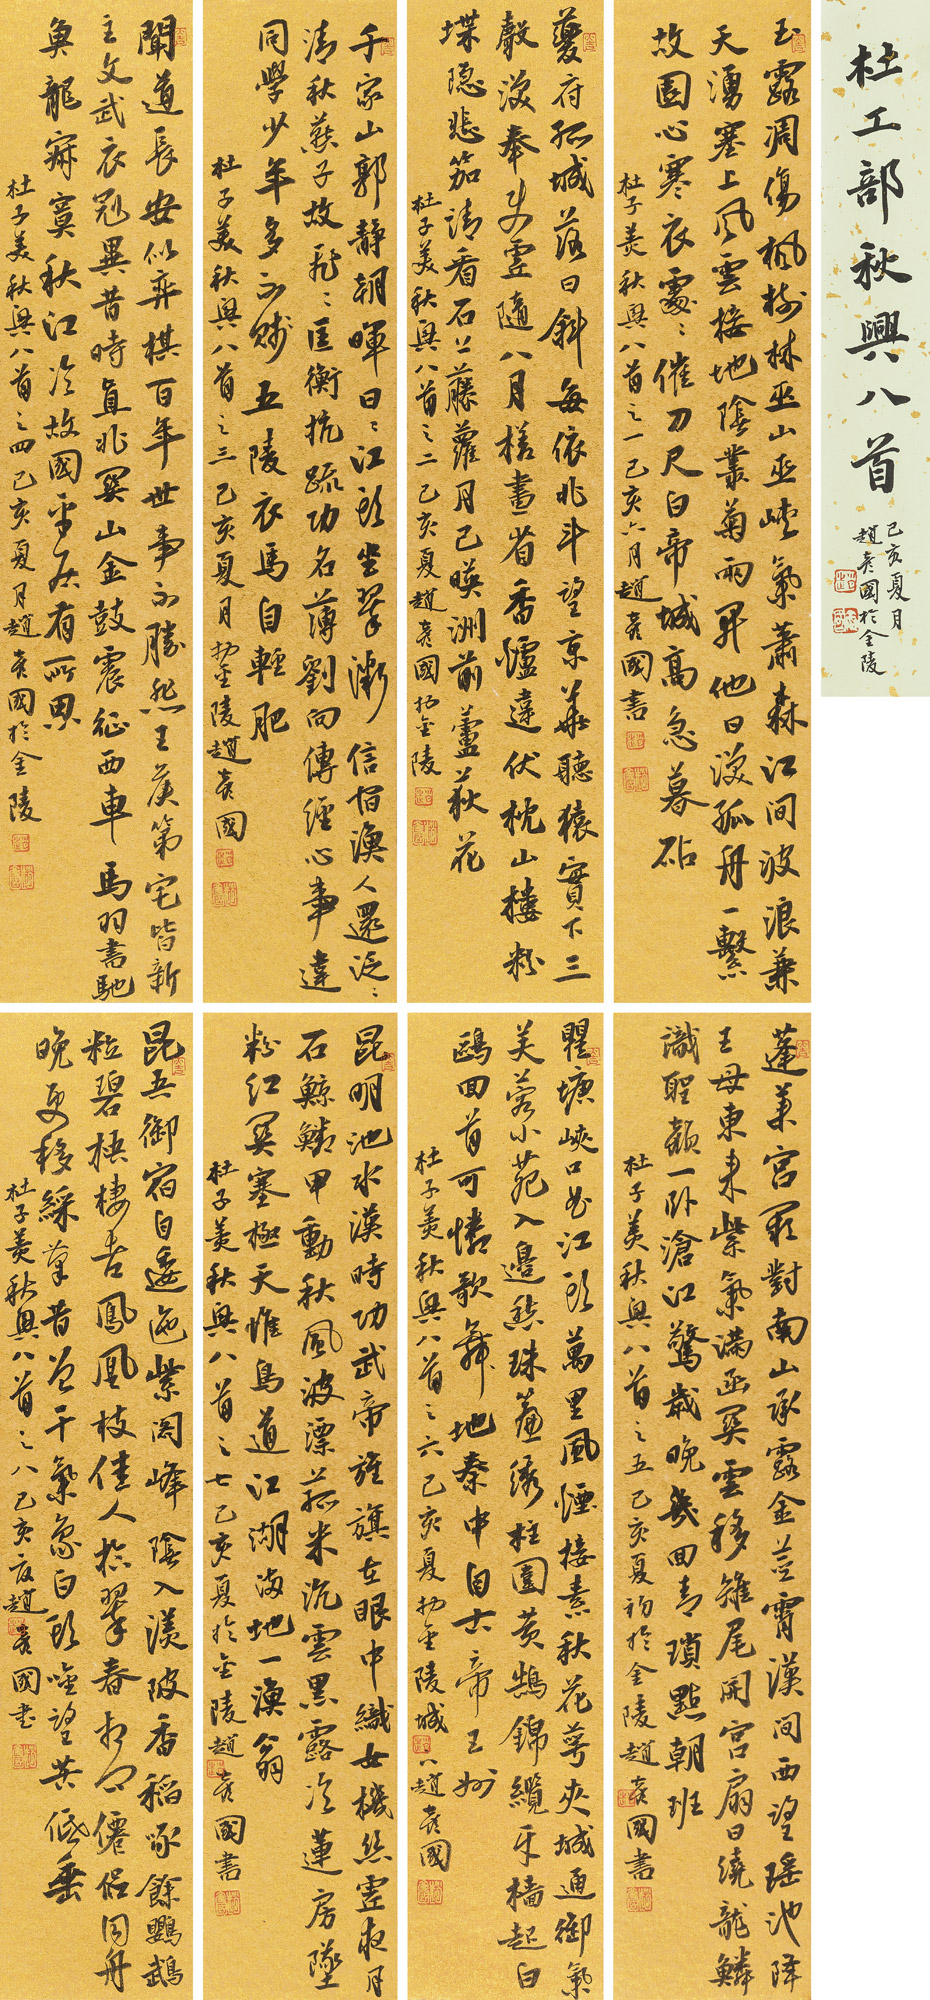 杜工部秋興八首
己亥夏月
趙彥國於金陵
玉露凋傷楓樹林巫山巫峽氣蕭森江間波浪兼
天湧塞上風雲接地陰叢菊兩開他日淚孤舟一繫
故園心寒衣處〻催刀尺白帝城高急暮砧
杜子美秋興八首之一己亥六月趙彥國書
夔府孤城落日斜每依北斗望京華聽猿實下三
聲淚奉使虛隨八月槎畫省香爐違伏枕山樓粉
堞隱悲笳請看石上藤蘿月已暎洲前蘆荻花
杜子美秋興八首之二己亥夏趙彥國於金陵
千家山郭靜朝暉日〻江頭坐翠微信宿漁人還泛〻
清秋燕子故飛〻匡衡抗疏功名薄劉向傳經心事違
同學少年多不賤五陵衣馬自輕肥
杜子美秋興八首之三己亥夏月於金陵趙彥國
聞道長安似弈棋百年世事不勝悲王侯第宅皆新
主文武衣冠異昔時直北關山金鼓震征西車馬羽書馳
魚龍寂寞秋江冷故國平居有所思
杜子美秋興八首之四己亥夏月趙彥國於金陵
蓬萊宮闕對南山承露金莖霄漢間西望瑤池降
王母東來紫氣滿函關雲移雉尾開宮扇日繞龍鱗
識聖顏一臥滄江驚歲晚幾回青瑣點朝班
杜子美秋興八首之五己亥夏初於金陵趙彥國書
瞿塘峽口曲江頭萬里風煙接素秋花萼夾城通御氣
芙蓉小苑入邊愁珠簾繡柱圍黃鵠錦纜牙檣起白
鷗回首可憐歌舞地秦中自古帝王州
杜子美秋興八首之六己亥夏於金陵城趙彥國
昆明池水漢時功武帝旌旗在眼中織女機絲虛夜月
石鯨鱗甲動秋風波漂菰米沉雲黑露冷蓮房墜
粉紅關塞極天惟鳥道江湖滿地一漁翁
杜子美秋興八首之七己亥夏於金陵趙彥國書
昆吾御宿自逶迤紫閣峰陰入渼陂香稻啄餘鸚鵡
粒碧梧棲老鳳凰枝佳人拾翠春相問僊侶同舟
晚更移綵筆昔曾干氣象白頭吟望苦低垂
杜子美秋興八首之八己亥夏趙彥國書